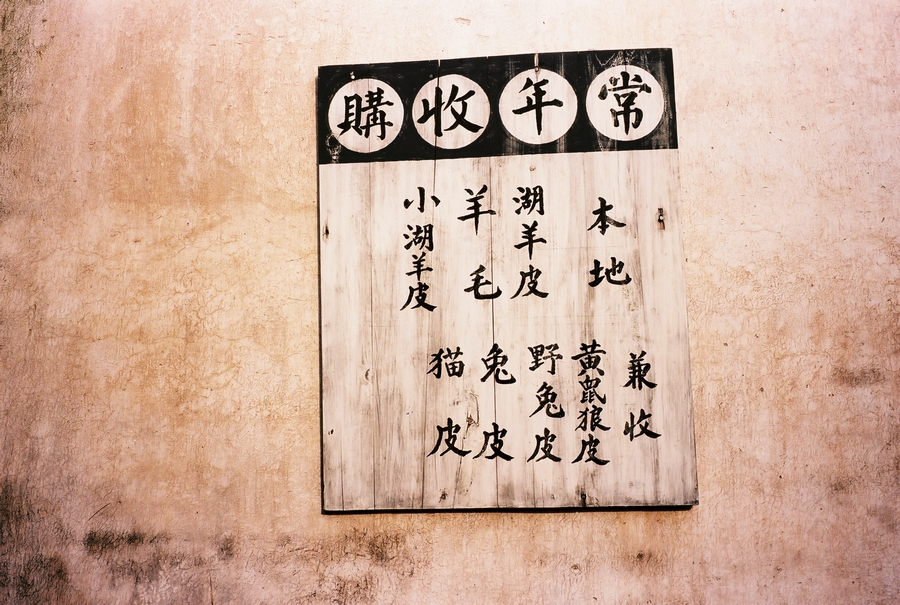 常年收購
本地
湖羊皮
羊毛
小湖羊皮
兼收
黃鼠狼皮
野兔皮
兔皮
猫皮